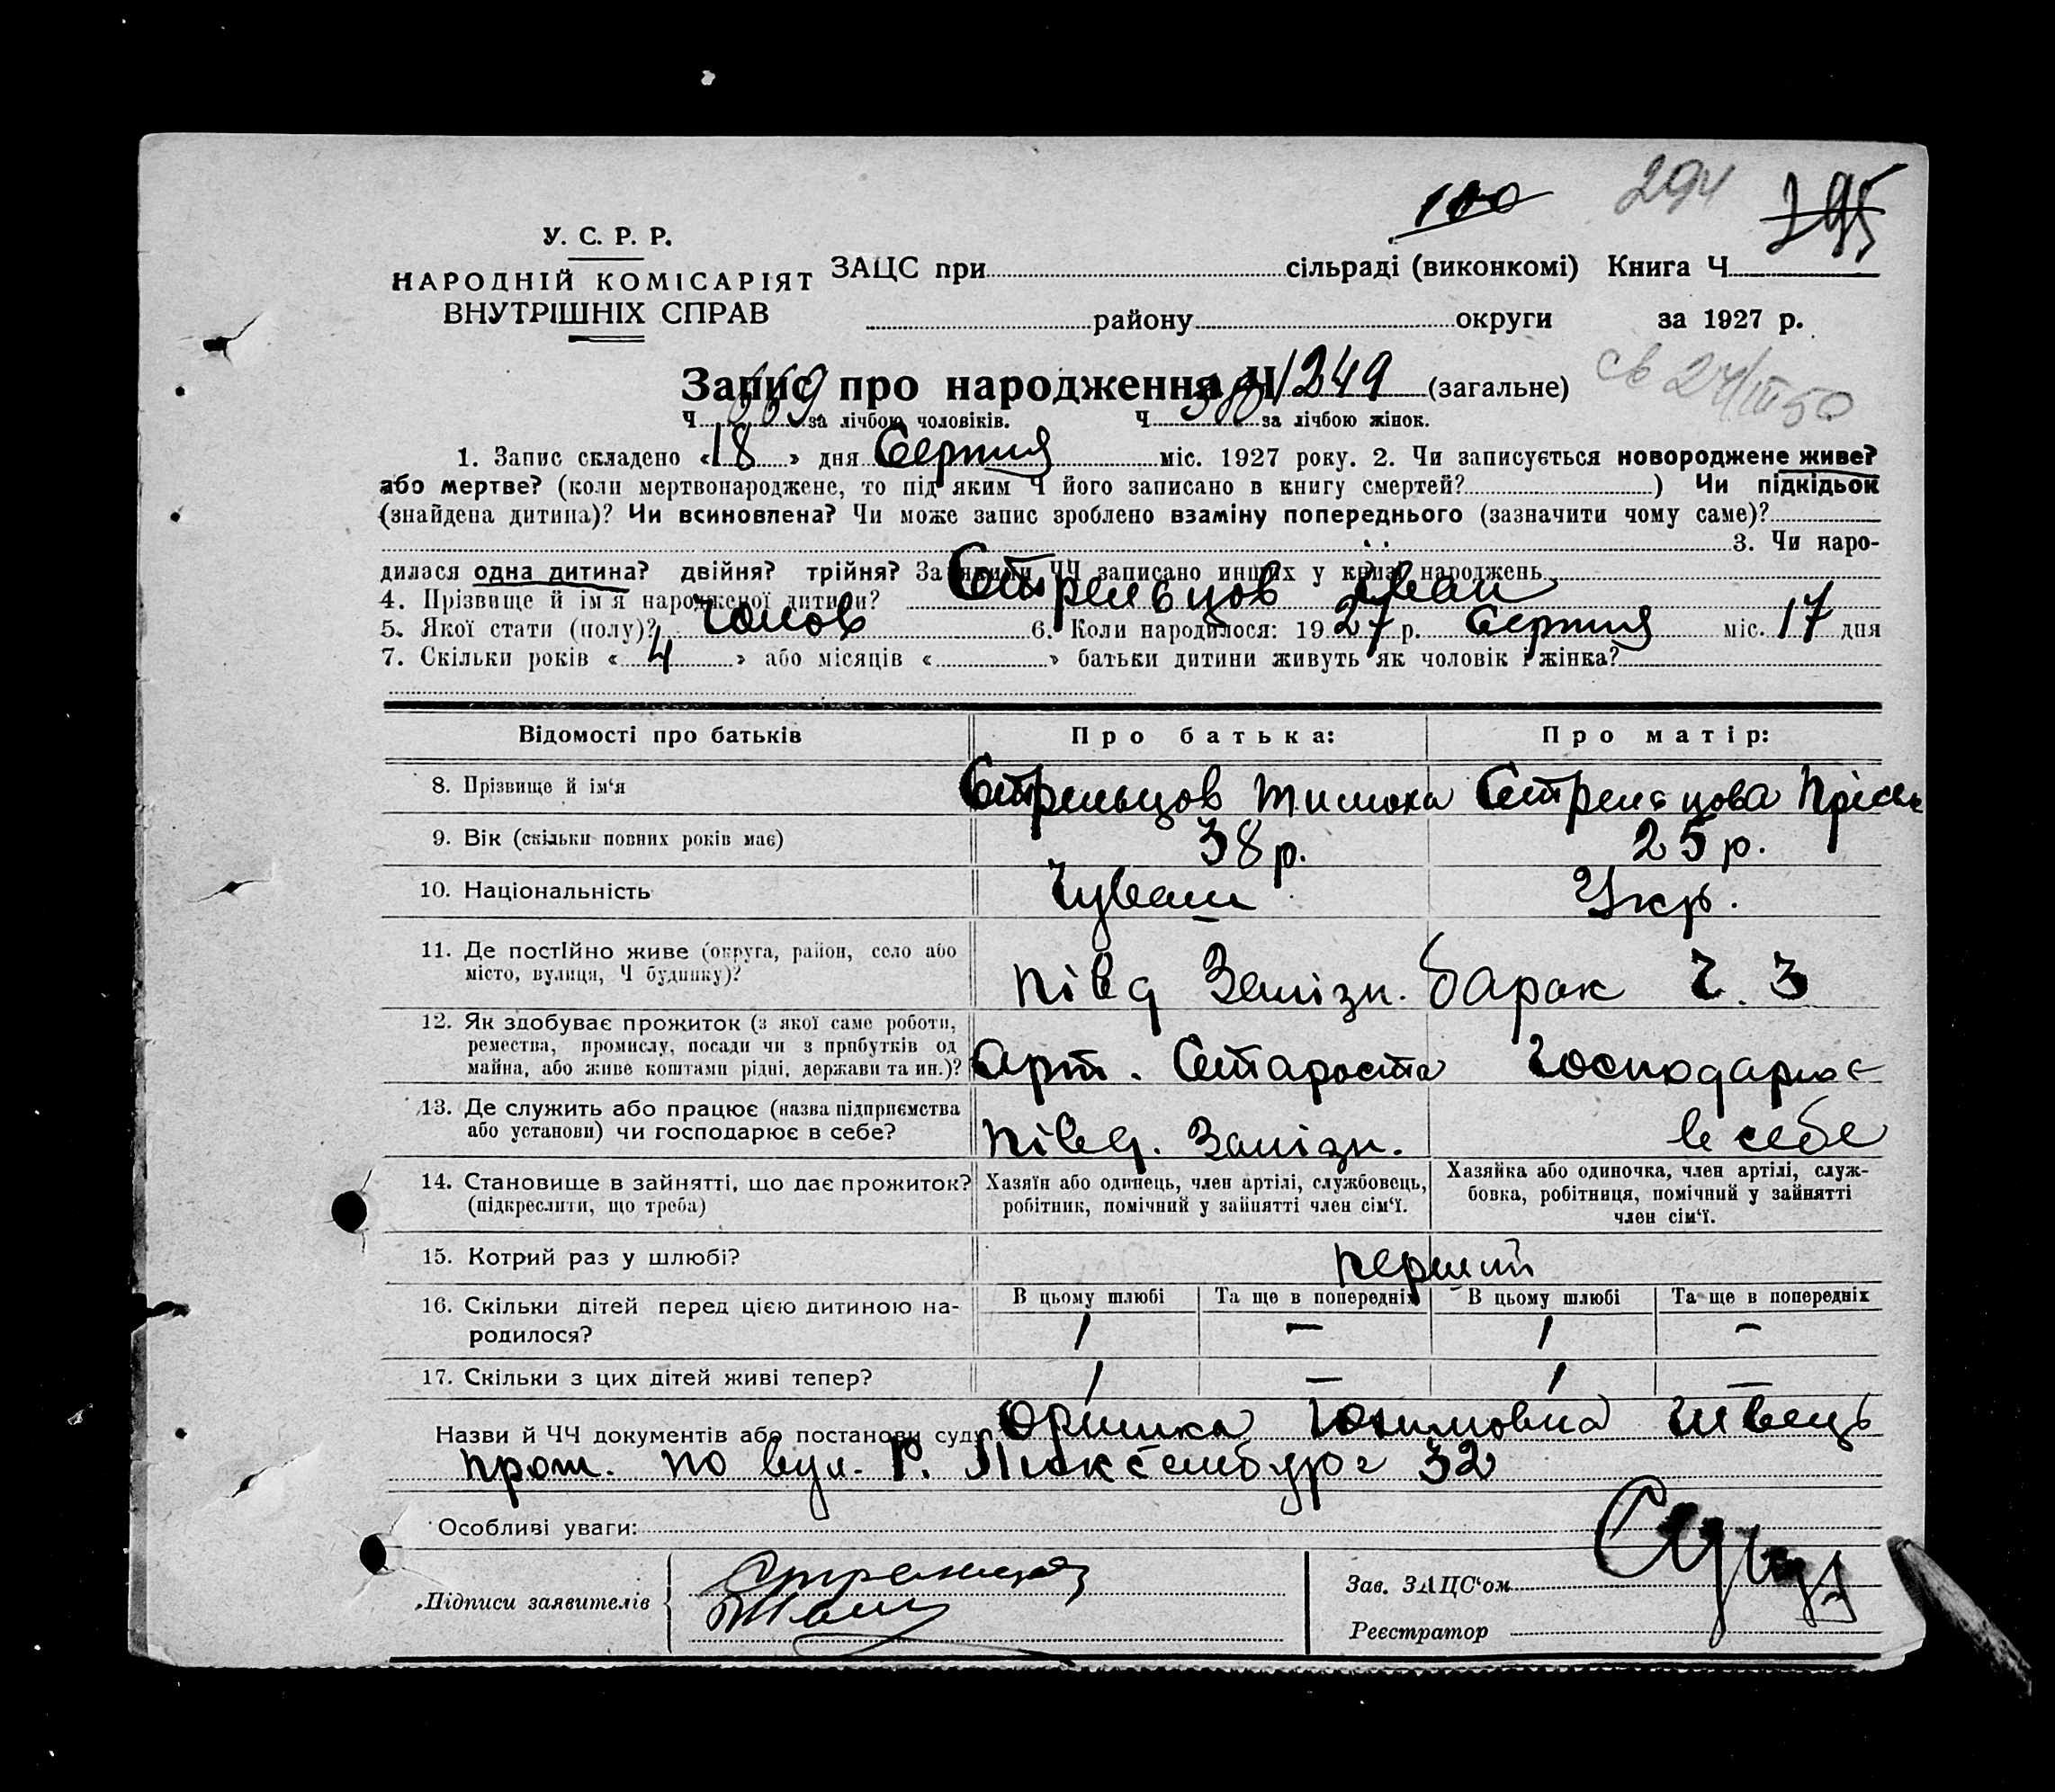 100 294 295
У. С. Р. Р.
НАРОДНІЙ КОМІСАРІЯТ
ВНУТРІШНІХ СПРАВ
ЗАЦС при сільраді (виконкомі) Книга Ч
району округи за 1927 р.
Запис про народження Ч 1249 (загальне)
св 27/III 50
Ч 669 за лічбою чоловіків. Ч 580 за лічбою жінок.
1. Запис складено «18» дня Серпня міс. 1927 року. 2. Чи записується новороджене живе?
або мертве? (коли мертвонароджене, то під яким Ч його записано в книгу смертей? ) Чи підкідьок
(знайдена дитина)? Чи всиновлена? Чи може запис зроблено взаміну попереднього (зазначити чому саме)?
3. Чи наро-
дилася одна дитина? двійня? трійня? За якими ЧЧ записано инших у книзі народжень
4. Прізвище й ім'я народженої дитини? Стрельцов Іван
5. Якої стати (полу)? Чолов 6. Коли народилося: 1927 р. Серпня міс. 17 дня
7. Скільки років «4» або місяців « » батьки дитини живуть як чоловік і жінка?
Відомості про батьків Про батька: Про матір:
8. Прізвище й ім'я Стрельцов Тимоха Стрельцова Прісь
9. Вік (скільки повних років має) 38 р. 25 р.
10. Національність Чуваш Укр.
11. Де постійно живе (округа, район, село або
місто, вулиця, Ч будинку)? Півд Залізн. барак Ч. 3
12. Як здобуває прожиток (з якої саме роботи,
ремества, промислу, посади чи з прибутків од
майна, або живе коштами рідні, держави та ин.)? Арт. Староста Господарює
13. Де служить або працює (назва підприємства
або установи) чи господарює в себе? Півд. Залізн. в себе
14. Становище в зайнятті, що дає прожиток?
(підкреслити, що треба)
Хазяїн або одинець, член артілі, службовець,
робітник, помічний у зайнятті член сім'ї.
Хазяйка або одиночка, член артілі, служ-
бовка, робітниця, помічний у зайнятті
член сім'ї.
15. Котрий раз у шлюбі? перший
16. Скільки дітей перед цією дитиною на-
родилося?
В цьому шлюбі Та ще в попередніх В цьому шлюбі Та ще в попередніх
1 — 1 —
17. Скільки з цих дітей живі тепер? 1 — 1 —
Назви й ЧЧ документів або постанови суду Оришка Юхимовна Швець
прож. по вул. Р. Люксембург 32
Особливі уваги:
Підписи заявителів
Зав. ЗАЦС'ом
Реєстратор